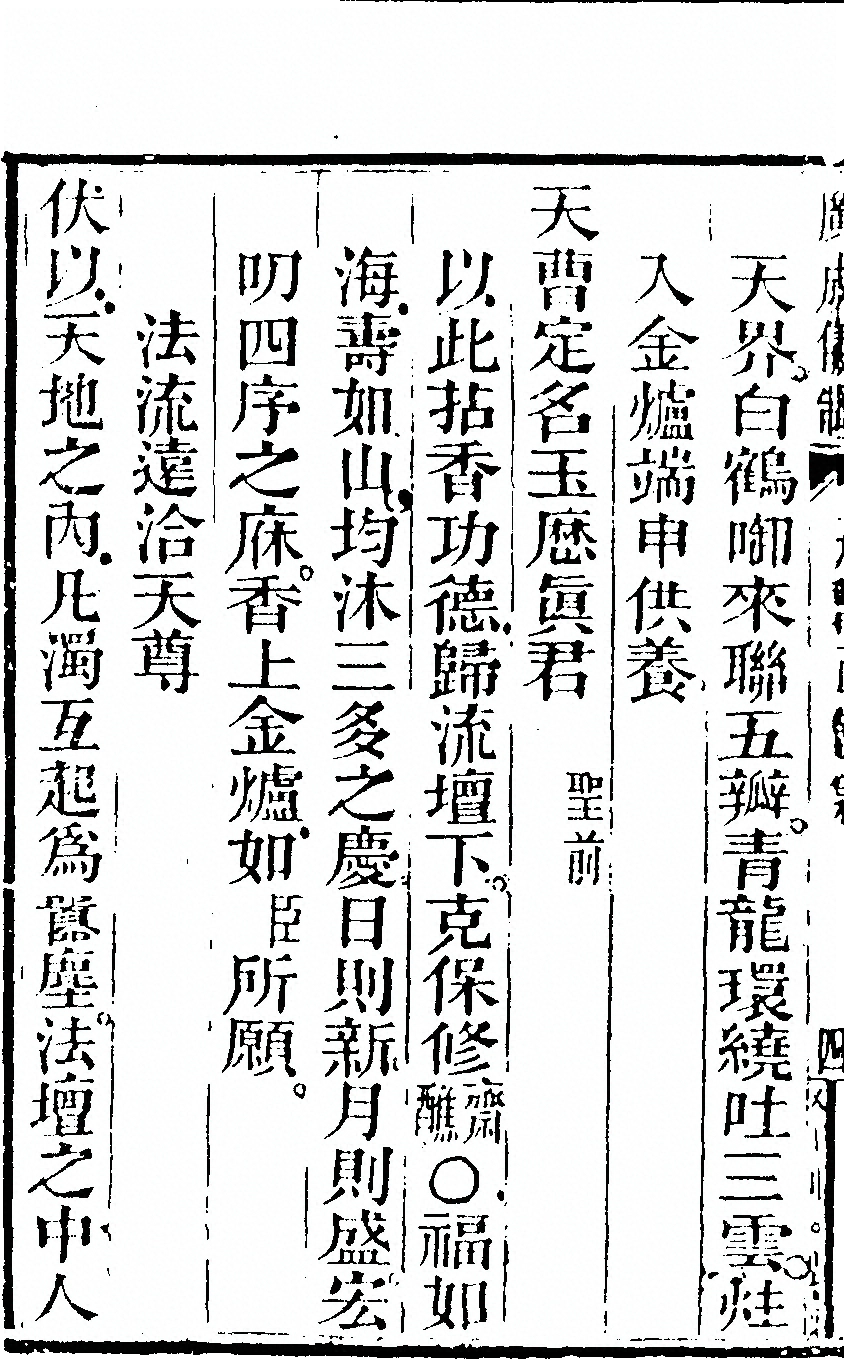 廣成儀制
四
天界。白鶴啣來聯五瓣。青龍環繞吐三雲。炷
入金爐端申供養
天曹定名玉厯眞君　聖前
以此拈香功德歸流壇下。克保修齋醮〇福如
海壽如山均沐三多之慶日則新月則盛宏
叨四序之庥。香上金爐如臣所願。
法流遠洽天尊
伏以天地之內凡濁互起爲囂塵。法壇之中人